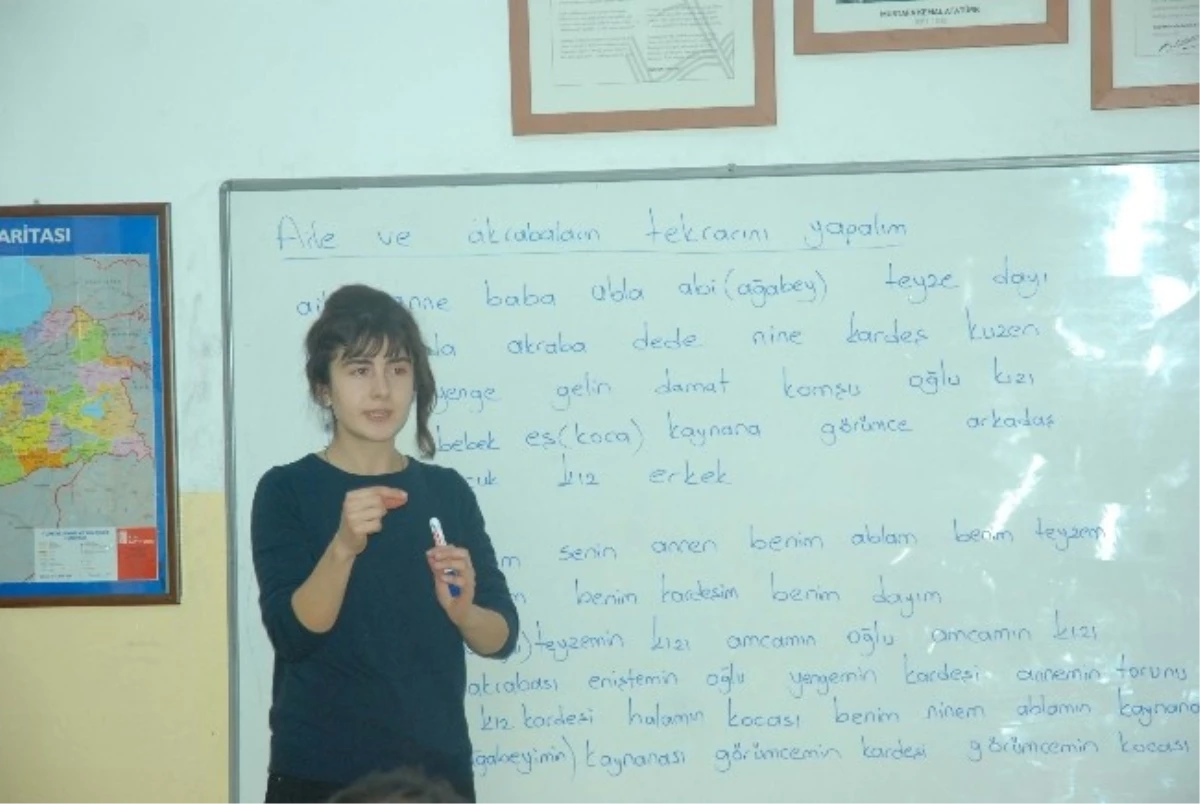 MUSTAFA KEMAL ATATÜRK
ARİTASI
Aile ve akrabaların tekrarını yapalım
anne baba abla abi (ağabey) teyze dayı
akraba dede nine kardeş kuzen
yenge gelin damat komşu oğlu kızı
bebek eş (koca) kaynana görümce arkadaş
kız erkek
senin annen benim ablam benim teyzem
benim kardeşim benim dayım
teyzemin kızı amcamın oğlu amcamın kızı
akrabası eniştemin oğlu yengemin kardeşi annemin torunu
kız kardeşi halamın kocası benim ninem ablamın kaynana
ağabeyimin) kaynanası görümcemin kardeşi görümcemin kocası